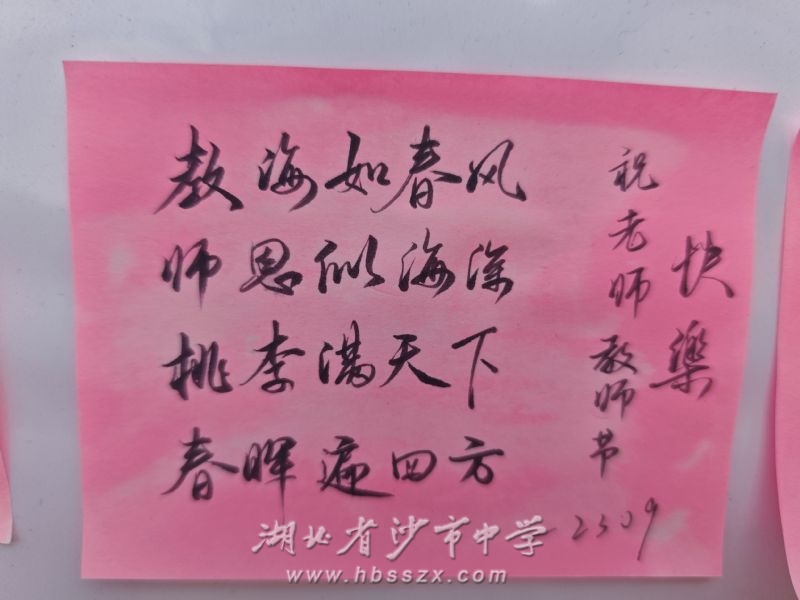 教海如春风
师恩似海深
桃李满天下
春晖遍四方
祝老师教师节
快樂
2309
湖北省沙市中学
www.hbsszx.com